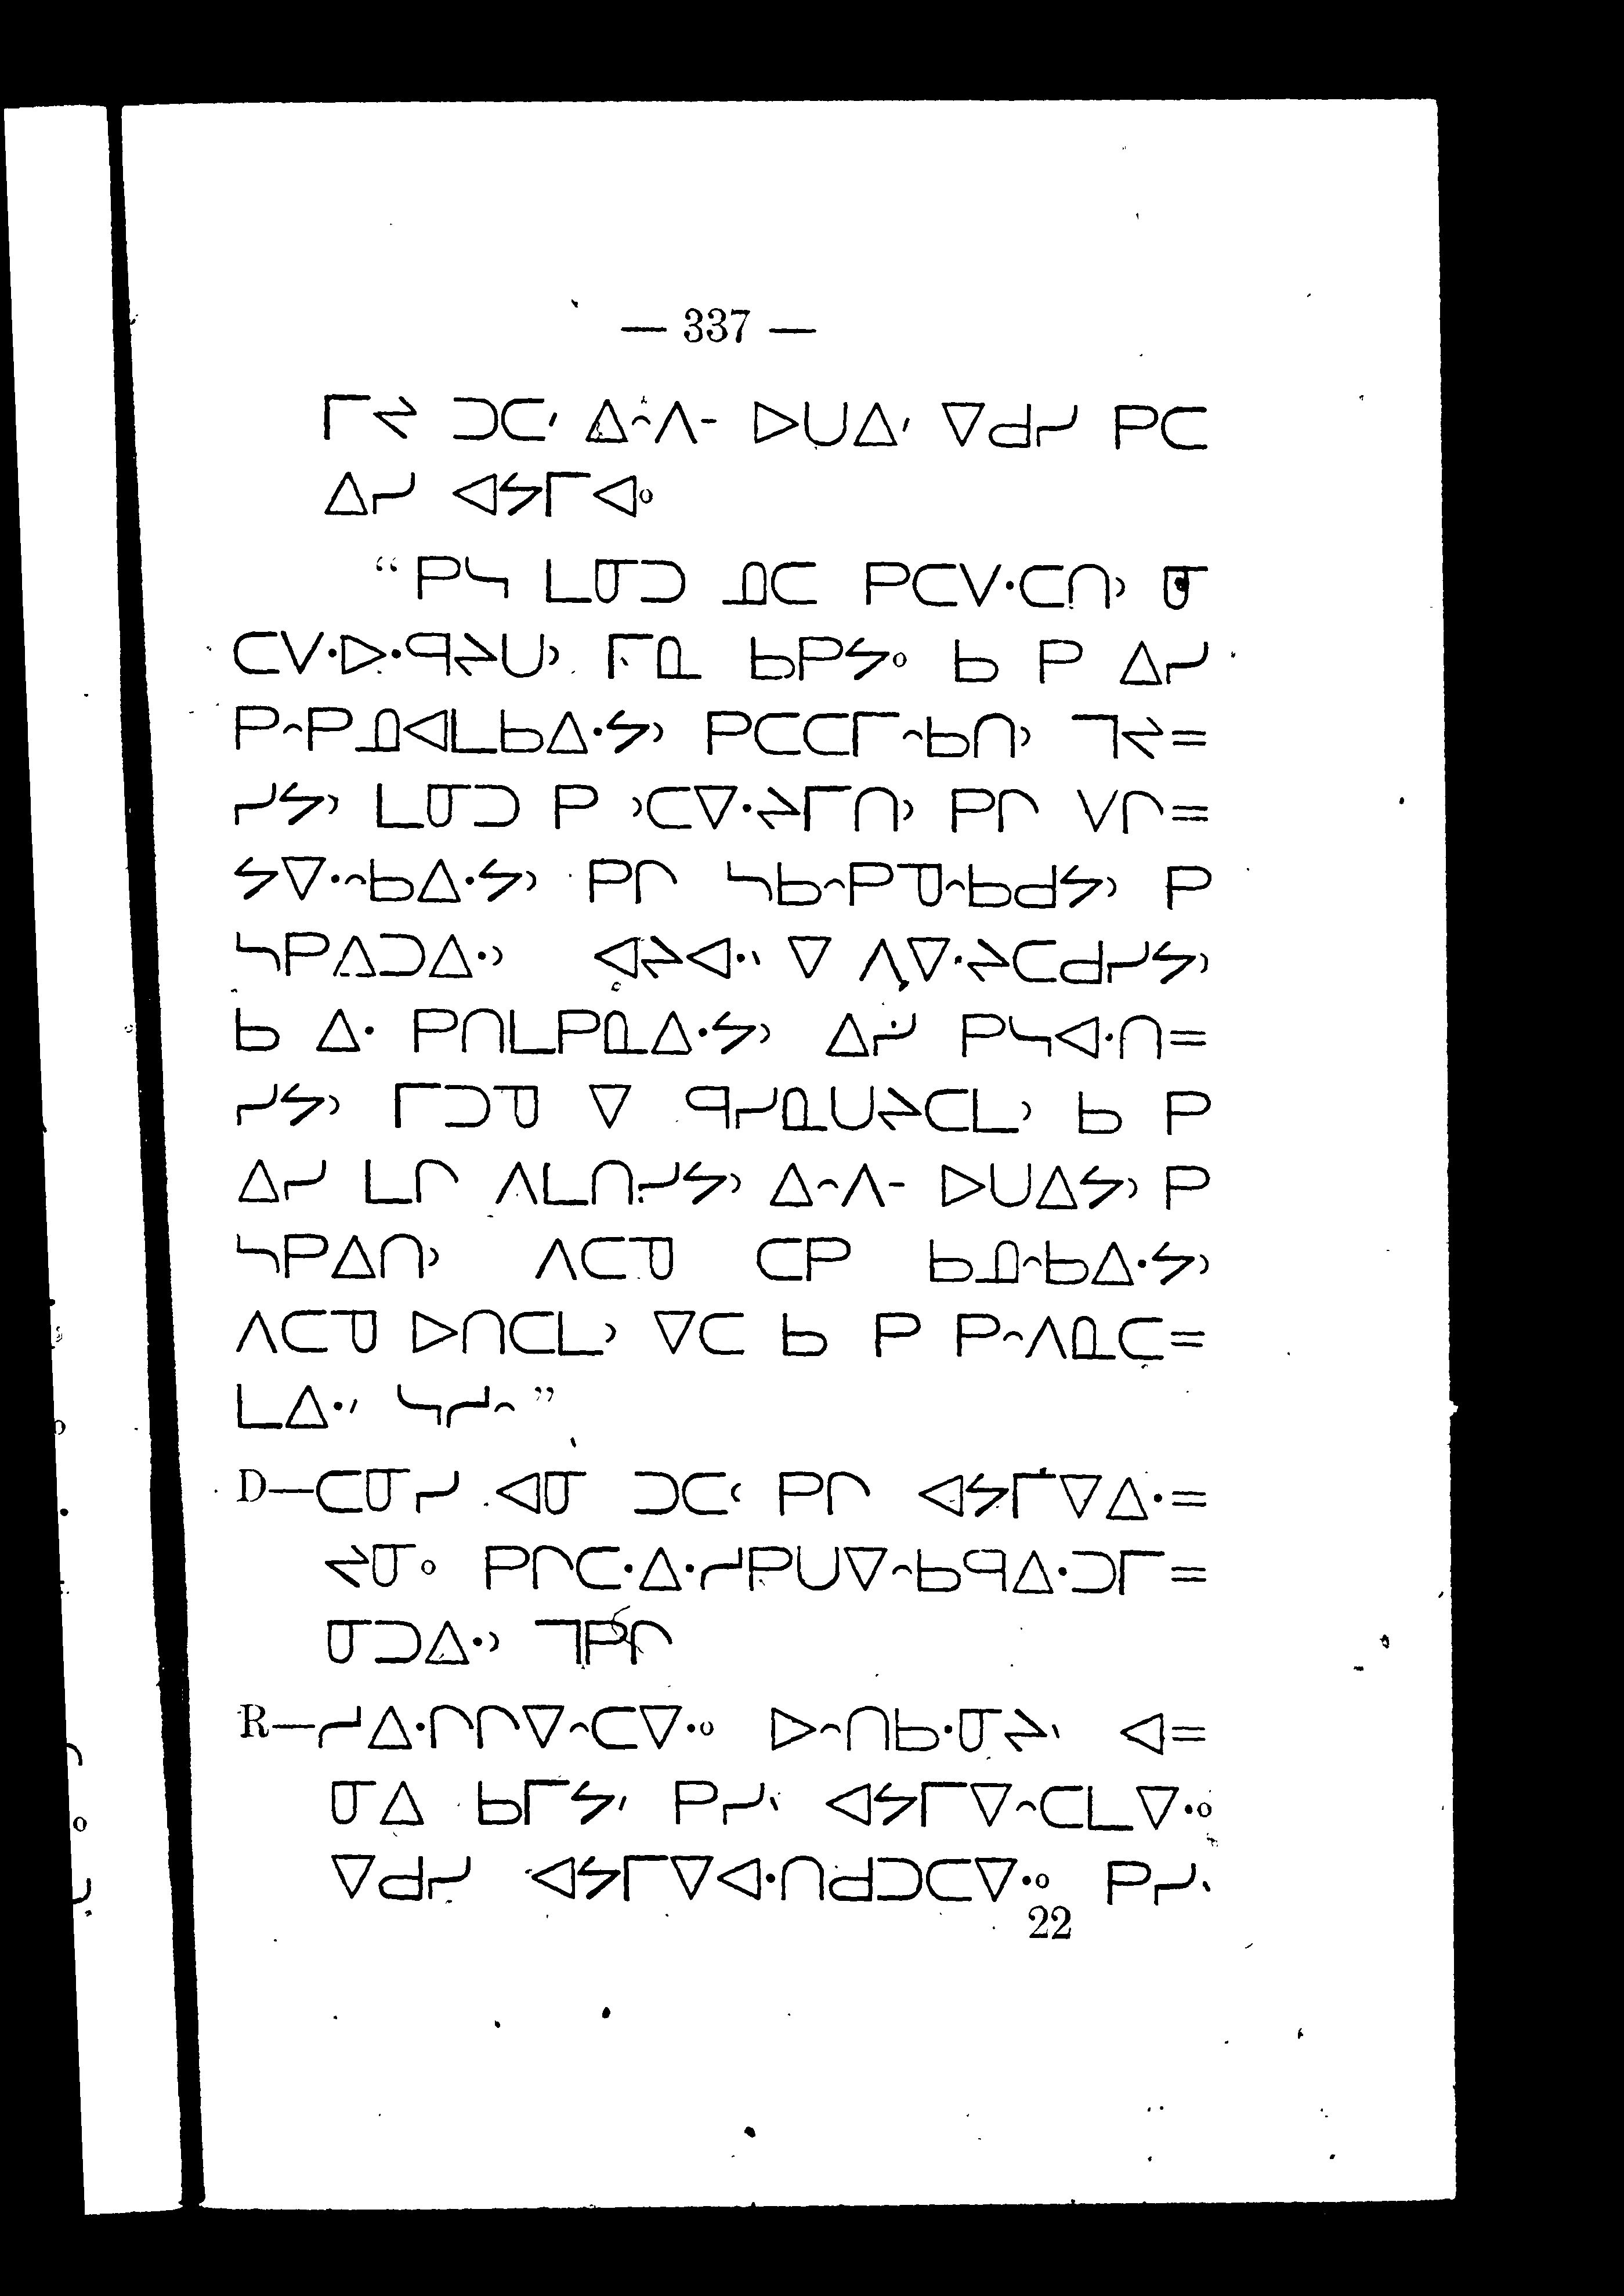 — 337 —
ᒥᔪ ᑐᑕᐟ ᐃᐢᐱᐨ ᐅᑌᐃᐟ ᐁᑯᓯ ᑭᑕ
ᐃᓯ ᐊᔭᒥᐊᐤ
“ ᑭᓴ ᒪᓂᑐ ᓄᑕ ᑭᑕᐯᐧᑕᑎᐣ ᓂ
ᑕᐯᐧᐅᐧᑫᔨᑌᐣ ᒥᓇ ᑲᑭᔭᐤ ᑲ ᑭ ᐃᓯ
ᑭᐢᑭᓄᐊᒪᑲᐃᐧᔭᐣ ᑭᑕᑕᒥᐢᑲᑎᐣ ᒣᔪ=
ᓯᔭᐣ ᒪᓂᑐ ᑭ ᐣᑕᐁᐧᔨᒥᑎᐣ ᑭᒋ ᐯᒋ=
ᔭᐁᐧᐢᑲᐃᐧᔭᐣ ᑭᒋ ᓴᑲᐢᑭᓀᐢᑲᑯᔭᐣ ᑭ
ᓴᑭᐃᑐᐃᐧᐣ ᐊᔨᐊᐧᐠ ᐁ ᐱᐁᐧᔨᑕᑯᓯᔭᐣ
ᑲ ᐃᐧ ᑭᑎᒪᑭᓇᐃᐧᔭᐣ ᐃᓯ ᑭᓴᐊᐧᑎ=
ᓯᔭᐣ ᒥᑐᓀ ᐁ ᑫᓯᓇᑌᔨᑕᒪᐣ ᑲ ᑭ
ᐃᓯ ᒪᒋ ᐱᒪᑎᓯᔭᐣ ᐃᐢᐱᐨ ᐅᑌᐃᔭᐣ ᑭ
ᓴᑭᐃᑎᐣ ᐱᑕᓀ ᑕᑭ ᑲᓄᐢᑲᐃᐧᔭᐣ
ᐱᑕᓀ ᐅᑎᑕᒪᐣ ᐁᑕ ᑲ ᑭ ᑭᐢᐱᓇᑕ=
ᒪᐃᐧᐟ ᓴᓯᐢ ”
D—ᑕᓂᓯ ᐊᓂ ᑐᑕᒼ ᑭᒋ ᐊᔭᒥᐁᐃᐧ=
ᔪᓂᐤ ᑭᒋᑕᐧᐃᐧᓯᑭᑌᐁᐢᑲᑫᐃᐧᑐᒥ=
ᓂᑐᐃᐧᐣ ᒣᑭᒋ
R—ᓯᐃᐧᒋᒋᐁᐢᑕᐁᐧᐤ ᐅᐢᑎᑲᐧᓂᔨᐠ ᐊ=
ᓂᐃ ᑲᒥᔭᐟ ᑭᓯᐠ ᐊᔭᒥᐁᐢᑕᒪᐁᐧᐤ
ᐁᑯᓯ ᐊᔭᒥᐁᐊᐧᑎᑯᑐᑕᐁᐧᐤ ᑭᓯᐠ
22